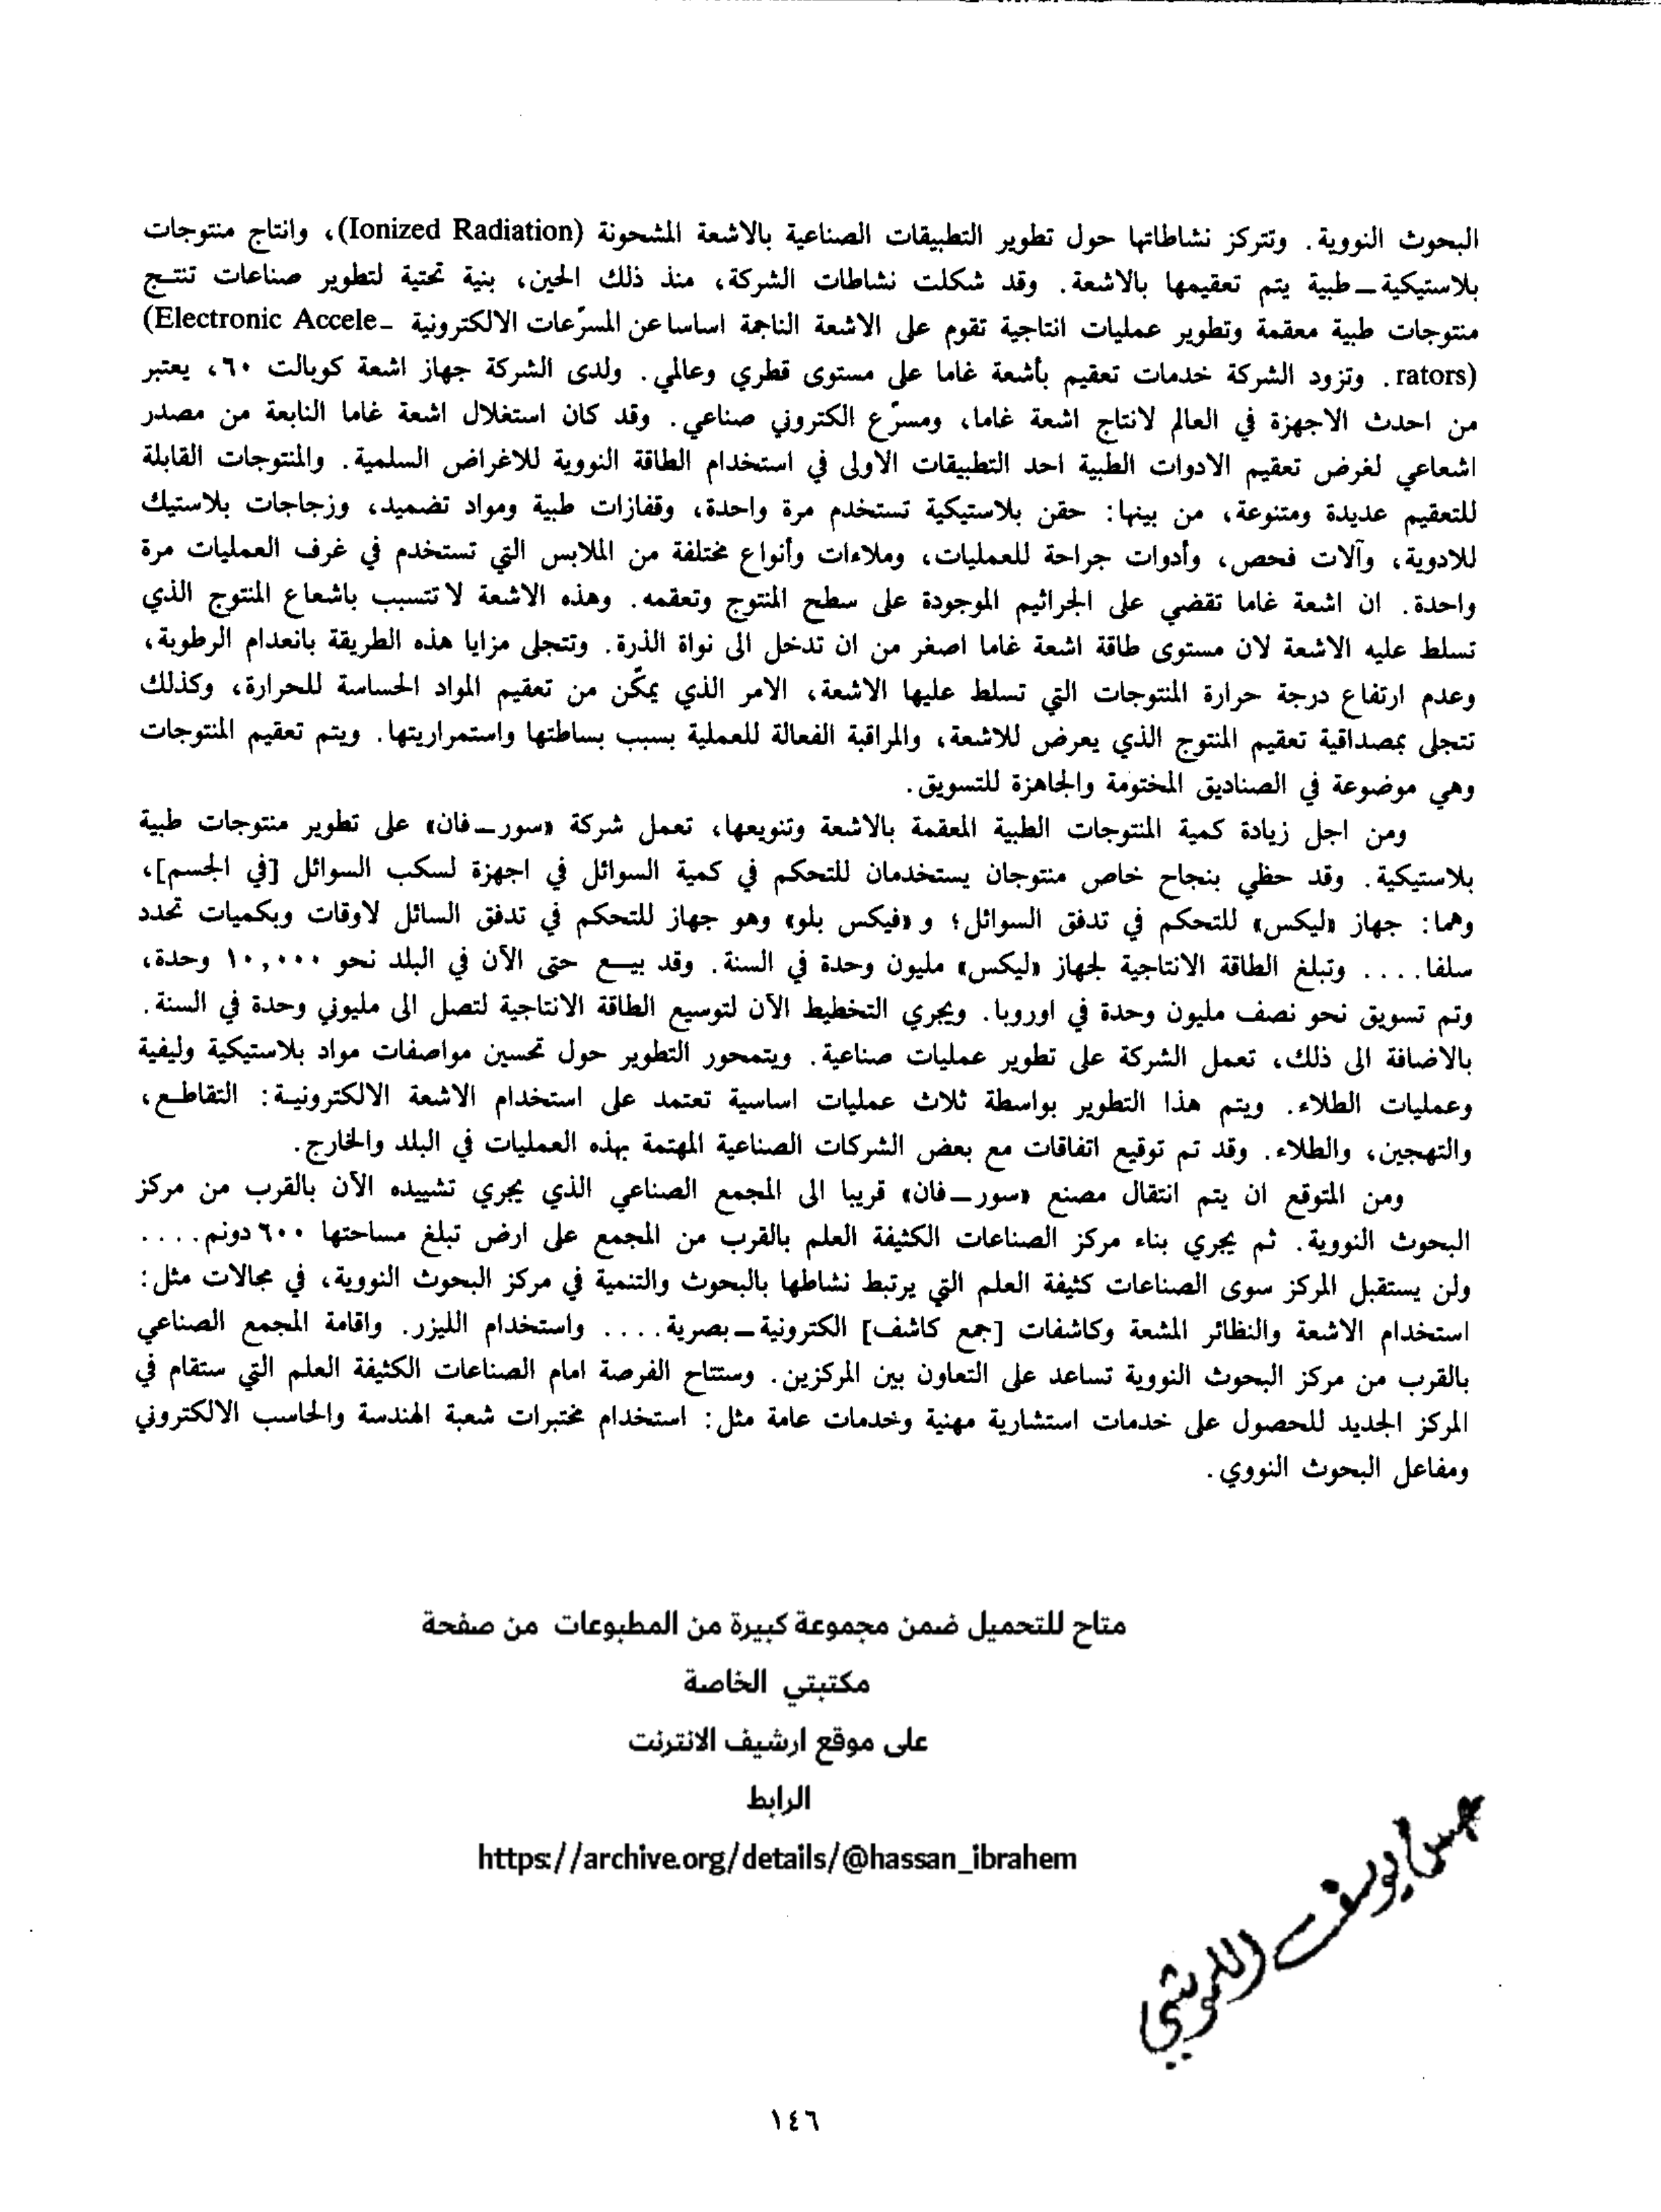 البحوث النووية. وتتركز نشاطاتها حول تطوير التطبيقات الصناعية بالاشعة المشحونة (Ionized Radiation)، وانتاج منتوجات
بلاستيكية ــ طبية يتم تعقيمها بالاشعة. وقد شكلت نشاطات الشركة، منذ ذلك الحين، بنية تحتية لتطوير صناعات تنتــج
منتوجات طبية معقمة وتطوير عمليات انتاجية تقوم على الاشعة الناجمة اساسا عن المسرّعات الالكترونية (Electronic Accele-
rators). وتزود الشركة خدمات تعقيم بأشعة غاما على مستوى قطري وعالمي. ولدى الشركة جهاز اشعة كوبالت ٦٠، يعتبر
من احدث الاجهزة في العالم لانتاج اشعة غاما، ومسرّع الكتروني صناعي. وقد كان استغلال اشعة غاما النابعة من مصدر
اشعاعي لغرض تعقيم الادوات الطبية احد التطبيقات الاولى في استخدام الطاقة النووية للاغراض السلمية. والمنتوجات القابلة
للتعقيم عديدة ومتنوعة، من بينها: حقن بلاستيكية تستخدم مرة واحدة، وقفازات طبية ومواد تضميد، وزجاجات بلاستيك
للادوية، وآلات فحص، وأدوات جراحة للعمليات، وملاءات وأنواع مختلفة من الملابس التي تستخدم في غرف العمليات مرة
واحدة. ان اشعة غاما تقضي على الجراثيم الموجودة على سطح المنتوج وتعقمه. وهذه الاشعة لا تتسبب باشعاع المنتوج الذي
تسلط عليه الاشعة لان مستوى طاقة اشعة غاما اصغر من ان تدخل الى نواة الذرة. وتتجلى مزايا هذه الطريقة بانعدام الرطوبة،
وعدم ارتفاع درجة حرارة المنتوجات التي تسلط عليها الاشعة، الامر الذي يمكّن من تعقيم المواد الحساسة للحرارة، وكذلك
تتجلى بمصداقية تعقيم المنتوج الذي يعرض للاشعة، والمراقبة الفعالة للعملية بسبب بساطتها واستمراريتها. ويتم تعقيم المنتوجات
وهي موضوعة في الصناديق المختومة والجاهزة للتسويق.
ومن اجل زيادة كمية المنتوجات الطبية المعقمة بالاشعة وتنويعها، تعمل شركة «سور ــ فان» على تطوير منتوجات طبية
بلاستيكية. وقد حظي بنجاح خاص منتوجان يستخدمان للتحكم في كمية السوائل في اجهزة لسكب السوائل [في الجسم]،
وهما: جهاز «ليكس» للتحكم في تدفق السوائل؛ و «فيكس بلو» وهو جهاز للتحكم في تدفق السائل لاوقات وبكميات تحدد
سلفا.... وتبلغ الطاقة الانتاجية لجهاز «ليكس» مليون وحدة في السنة. وقد بيــع حتى الآن في البلد نحو ١٠,٠٠٠ وحدة،
وتم تسويق نحو نصف مليون وحدة في اوروبا. ويجري التخطيط الآن لتوسيع الطاقة الانتاجية لتصل الى مليوني وحدة في السنة.
بالاضافة الى ذلك، تعمل الشركة على تطوير عمليات صناعية. ويتمحور التطوير حول تحسين مواصفات مواد بلاستيكية وليفية
وعمليات الطلاء. ويتم هذا التطوير بواسطة ثلاث عمليات اساسية تعتمد على استخدام الاشعة الالكترونيــة: التقاطــع،
والتهجين، والطلاء. وقد تم توقيع اتفاقات مع بعض الشركات الصناعية المهتمة بهذه العمليات في البلد والخارج.
ومن المتوقع ان يتم انتقال مصنع «سور ــ فان» قريبا الى المجمع الصناعي الذي يجري تشييده الآن بالقرب من مركز
البحوث النووية. ثم يجري بناء مركز الصناعات الكثيفة العلم بالقرب من المجمع على ارض تبلغ مساحتها ٦٠٠ دونم....
ولن يستقبل المركز سوى الصناعات كثيفة العلم التي يرتبط نشاطها بالبحوث والتنمية في مركز البحوث النووية، في مجالات مثل:
استخدام الاشعة والنظائر المشعة وكاشفات [جمع كاشف] الكترونية ــ بصرية.... واستخدام الليزر. واقامة المجمع الصناعي
بالقرب من مركز البحوث النووية تساعد على التعاون بين المركزين. وستتاح الفرصة امام الصناعات الكثيفة العلم التي ستقام في
المركز الجديد للحصول على خدمات استشارية مهنية وخدمات عامة مثل: استخدام مختبرات شعبة الهندسة والحاسب الالكتروني
ومفاعل البحوث النووي.
متاح للتحميل ضمن مجموعة كبيرة من المطبوعات من صفحة
مكتبتي الخاصة
على موقع ارشيف الانترنت
الرابط
https://archive.org/details/@hassan_ibrahem
يوسف
١٤٦